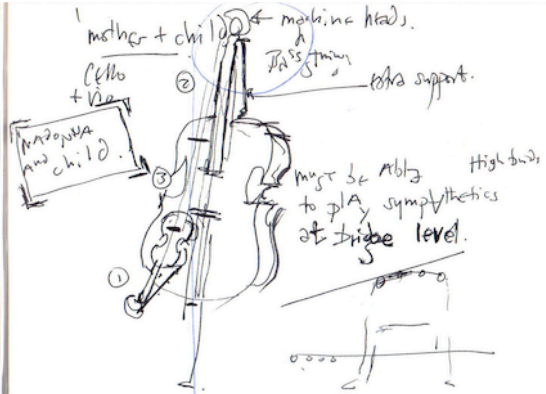 mother + child
cello
+ vio
machine heads.
Bass string
extra support.
②
MADONNA
and child.
③
must be Able
to play sympathetics
at bridge level.
High
①